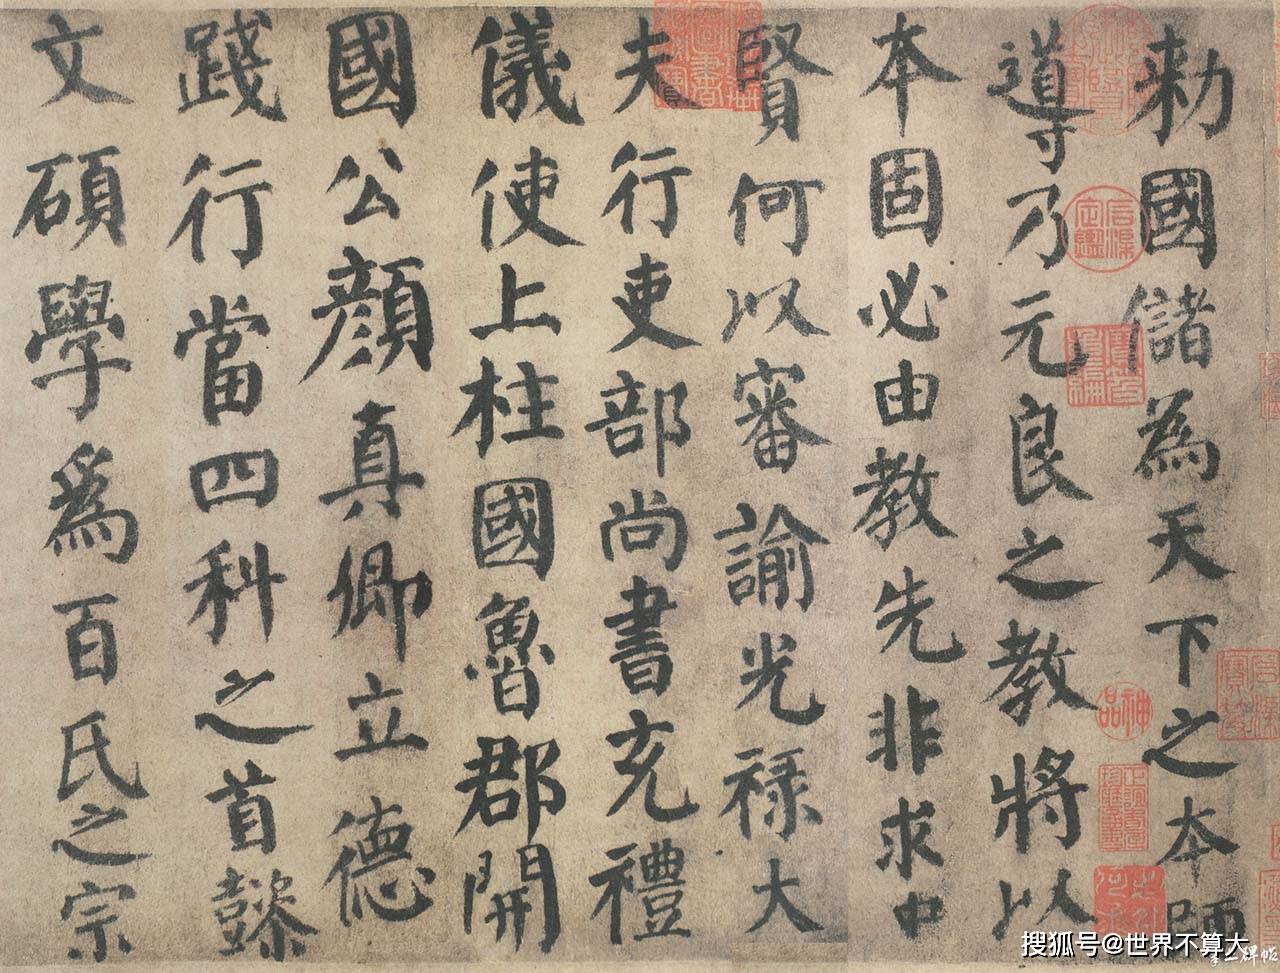 勅國儲為天下之本師
導乃元良之教將以
本固必由教先非求中
賢何以審諭光祿大
夫行吏部尚書充禮
儀使上柱國魯郡開
國公顏真卿立德
踐行當四科之首懿
文碩學為百氏之宗
神品
搜狐号@世界不算大